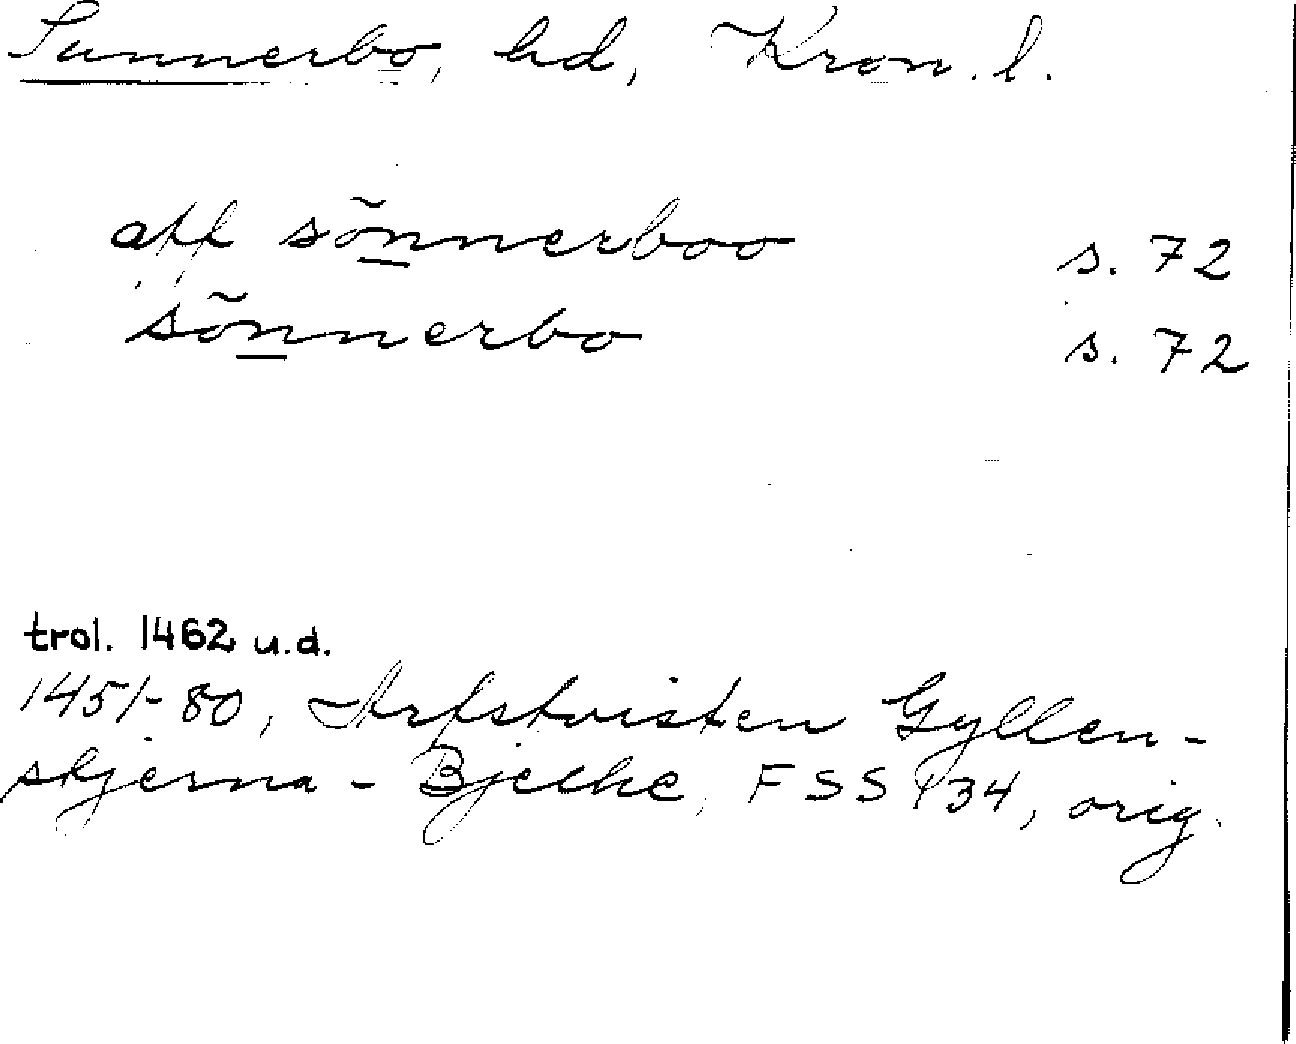 Sunnerbo, hd, Kron. l.
aff sönnerboo s. 72
sönnerbo s. 72
trol. 1462 u.d.
1451-80, Arfstvisten Gyllen-
stjerna - Bjelke, FSS 134, orig.